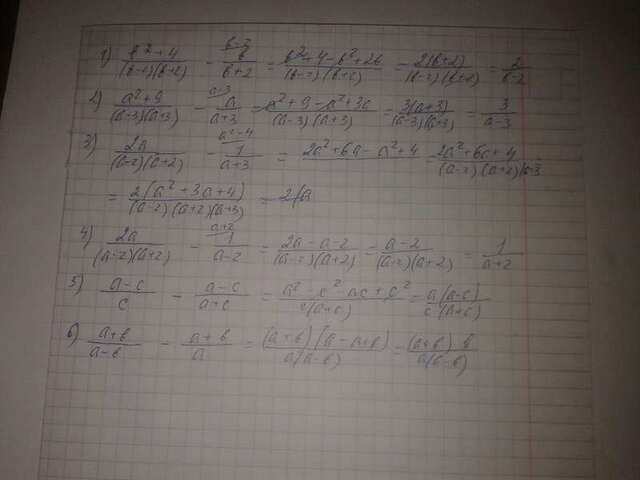 1) (b²+4)/((b-2)(b+2)) - b/(b+2) = (b²+4-b²+2b)/((b-2)(b+2)) = 2(b+2)/((b-2)(b+2)) = 2/(b-2)
2) (a²+9)/((a-3)(a+3)) - a/(a+3) = (a²+9-a²+3a)/((a-3)(a+3)) = 3(a+3)/((a-3)(a+3)) = 3/(a-3)
3) 2a/((a-2)(a+2)) - 1/(a+3) = 2a²+6a-a²+4 = (2a²+6a+4)/((a-2)(a+2)(a+3)
= 2(a²+3a+4)/((a-2)(a+2)(a+3)) =
4) 2a/((a-2)(a+2)) - 1/(a-2) = (2a-a-2)/((a-2)(a+2)) = (a-2)/((a-2)(a+2)) = 1/(a+2)
5) (a-c)/c - (a-c)/(a+c) = (a²-c²-ac+c²)/(c(a+c)) = a(a-c)/(c(a+c))
6) (a+b)/(a-b) - (a+b)/a = (a+b)(a-a+b)/(a(a-b)) = (a+b)b/(a(a-b))